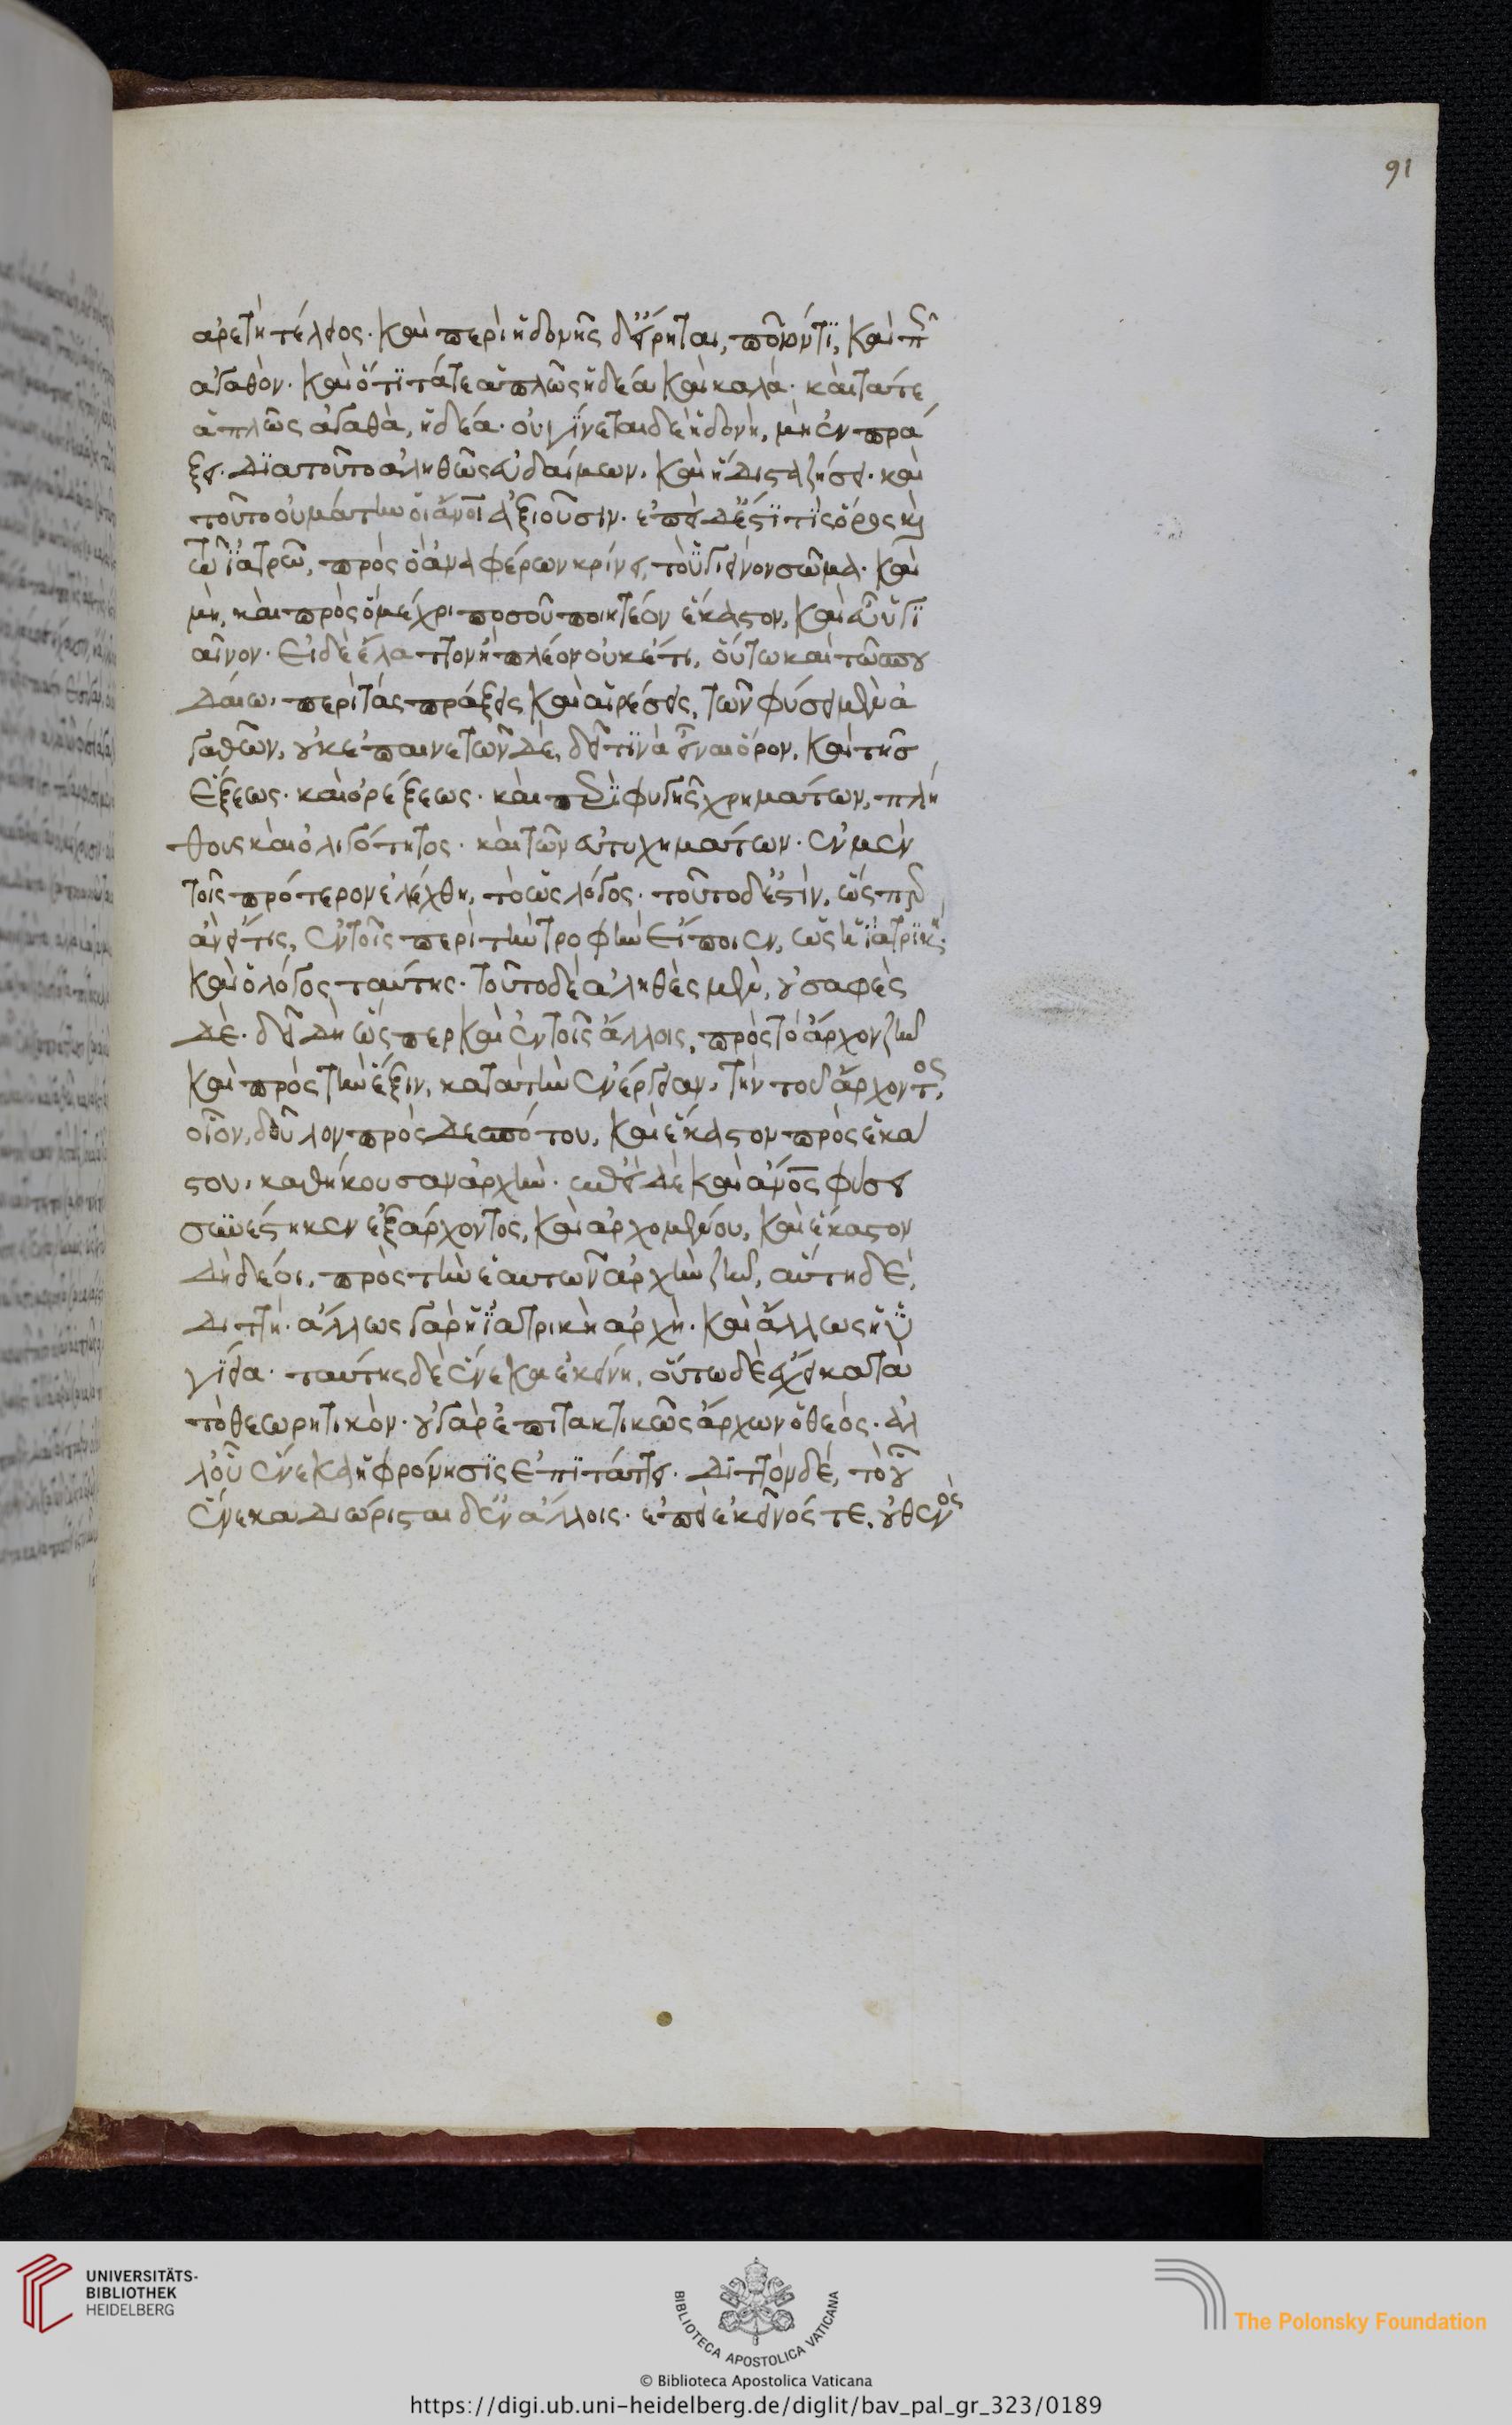 91
ἀρετὴ τέλειος. καὶ περὶ ἡδονῆς δ' εἴρηται, ποῖόν τι, καὶ πῶς
ἀγαθόν. καὶ ὅτι τά τε ἁπλῶς ἡδέα καὶ καλά. καὶ τά τε
ἁπλῶς ἀγαθὰ, ἡδέα. οὐ γίνεται δὲ ἡδονὴ, μὴ ἐν πρά
ξει. διὰ τοῦτο ἀληθῶς εὐδαίμων, καὶ ἥδιστα ζήσει. καὶ
τοῦτο οὐ μάτην οἱ ἄνοι ἀξιοῦσιν. ἐπεὶ δέ ἐστί τις ὅρος καὶ
τῶ ἰατρῶ, πρὸς ὃ ἀναφέρων κρίνει, τὸ ὑγιεινὸν σῶμα. καὶ
μὴ, καὶ πρὸς ὃ μέχρι ποσοῦ ποιητέον ἕκαστον, καὶ εὖ ὑγι
αῖνον. εἰ δὲ ἔλαττον ἢ πλέον οὐκέτι, οὕτω καὶ τῶ σπου
δαίω, περὶ τὰς πράξεις καὶ αἱρέσεις, τῶν φύσει μὲν ἀ
γαθῶν, οὐκ ἐπαινετῶν δὲ, δεῖ τινὰ εἶναι ὅρον, καὶ τῆς
ἕξεως. καὶ ὀρέξεως. καὶ περὶ φυγῆς χρημάτων, πλή
θους καὶ ὀλιγότητος. καὶ τῶν εὐτυχημάτων. ἐν μὲν
τοῖς πρότερον ἐλέχθη, τὸ ὡς λόγος. τοῦτο δ' ἐστὶν, ὥσπερ
ἂν εἴ τις, ἐν τοῖς περὶ τὴν τροφὴν εἴποιεν, ὡς ἡ ἰατρικὴ
καὶ ὁ λόγος ταύτης. τοῦτο δὲ ἀληθὲς μὲν, οὐ σαφὲς
δέ. δεῖ δὴ ὥσπερ καὶ ἐν τοῖς ἄλλοις, πρὸς τὸ ἄρχον ζῆν
καὶ πρὸς τὴν ἕξιν, κατὰ τὴν ἐνέργειαν, τὴν τοῦ ἄρχοντος,
οἷον, δοῦλον πρὸς δεσπότου, καὶ ἕκαστον πρὸς ἑκά
στου, καθήκουσαν ἀρχὴν. ἐπεὶ δὲ καὶ ἄνος φύσει
συνέστηκεν ἐξ ἄρχοντος, καὶ ἀρχομένου, καὶ ἕκαστον
δὴ δέοι, πρὸς τὴν ἑαυτῶν ἀρχὴν ζῆν, αὕτη δὲ,
διττή. ἄλλως γὰρ ἡ ἰατρικὴ ἀρχὴ. καὶ ἄλλως ἡ ὑ
γίεια. ταύτης δὲ ἕνεκα ἐκείνη. οὕτω δὲ ἔχει κατὰ
τὸ θεωρητικὸν. οὐ γὰρ ἐπιτακτικῶς ἄρχων ὁ θεός. ἀλ
λ' οὗ ἕνεκα ἡ φρόνησις ἐπιτάττει. διττὸν δὲ, τὸ οὗ
ἕνεκα διώρισται δ' ἐν ἄλλοις. ἐπεὶ ἐκεῖνός τε, οὐθενὸς
UNIVERSITÄTS-
BIBLIOTHEK
HEIDELBERG
BIBLIOTECA APOSTOLICA VATICANA
The Polonsky Foundation
© Biblioteca Apostolica Vaticana
https://digi.ub.uni-heidelberg.de/diglit/bav_pal_gr_323/0189